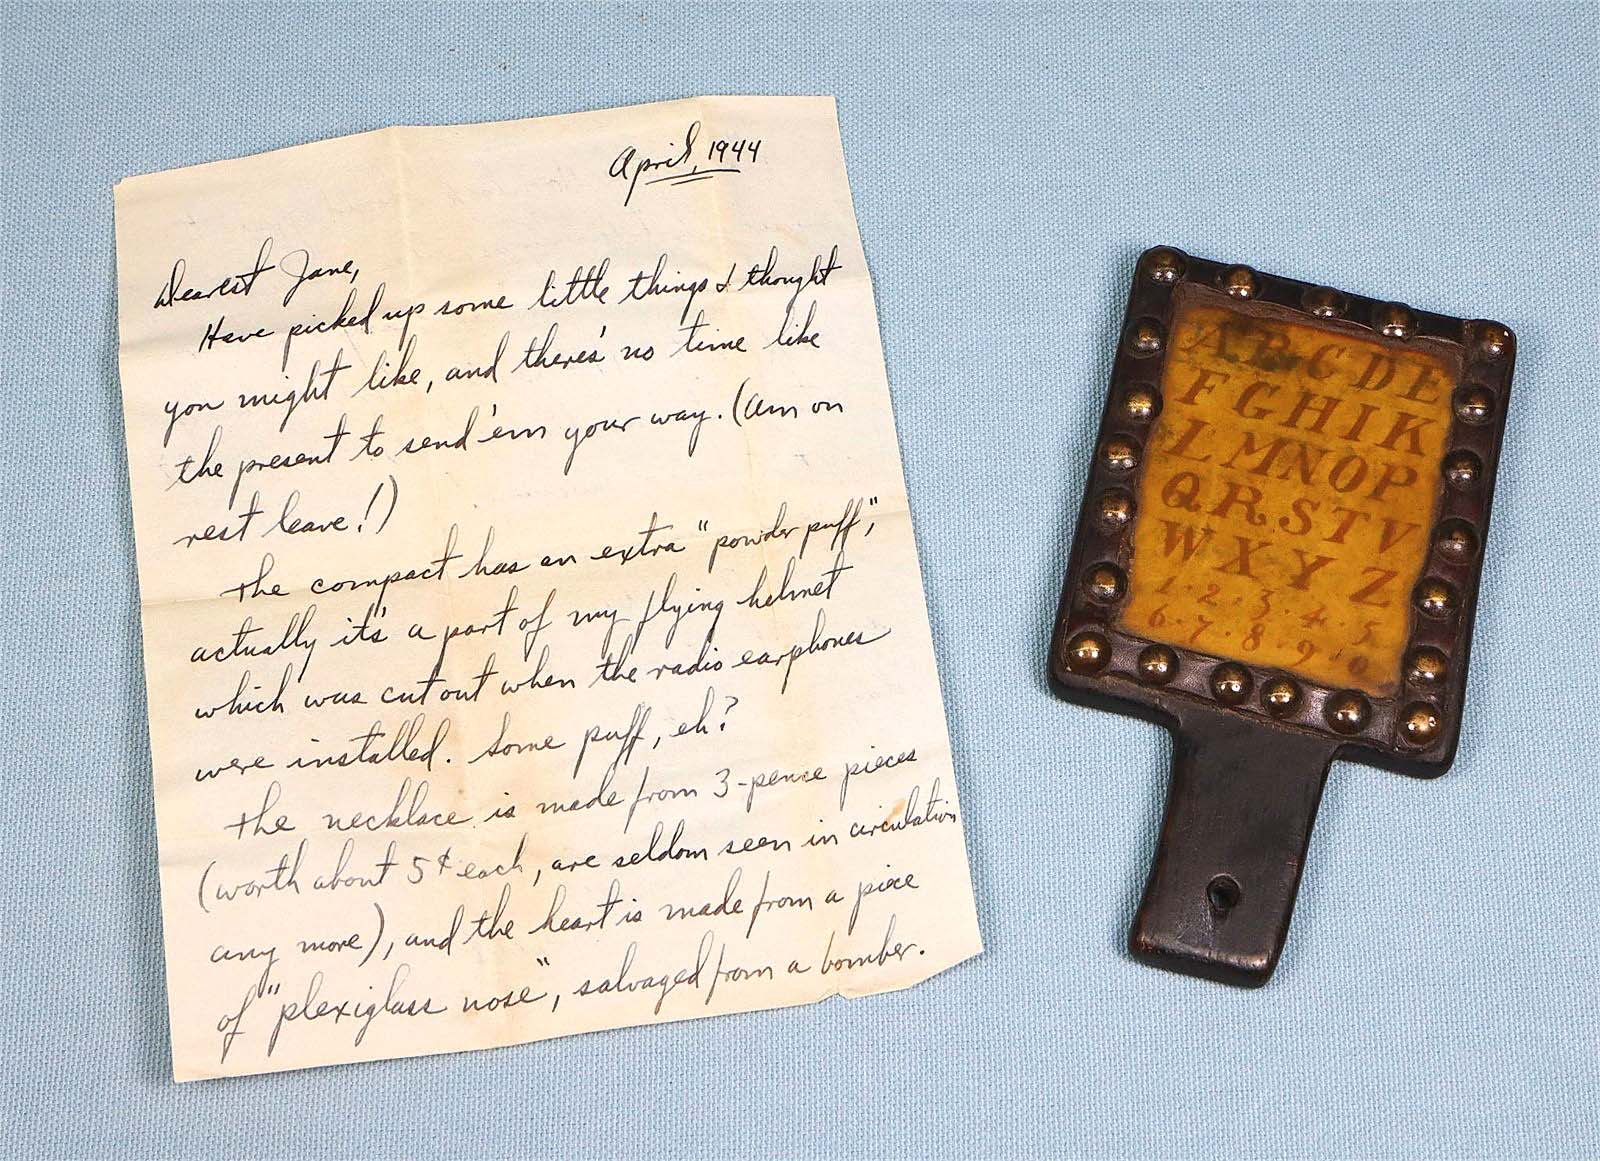 April, 1944
Dearest Jane,
Have picked up some little things & thought
you might like, and there's no time like
the present to send 'em your way. (Am on
rest leave!)
The compact has an extra "powder puff",
actually it's a part of my flying helmet
which was cut out when the radio earphones
were installed. Some puff, eh?
The necklace is made from 3-pence pieces
(worth about 5¢ each, are seldom seen in circulation
any more), and the heart is made from a piece
of "plexiglass nose", salvaged from a bomber.
A B C D E
F G H I K
L M N O P
Q R S T V
W X Y Z
1·2·3·4·5
6·7·8·9·0